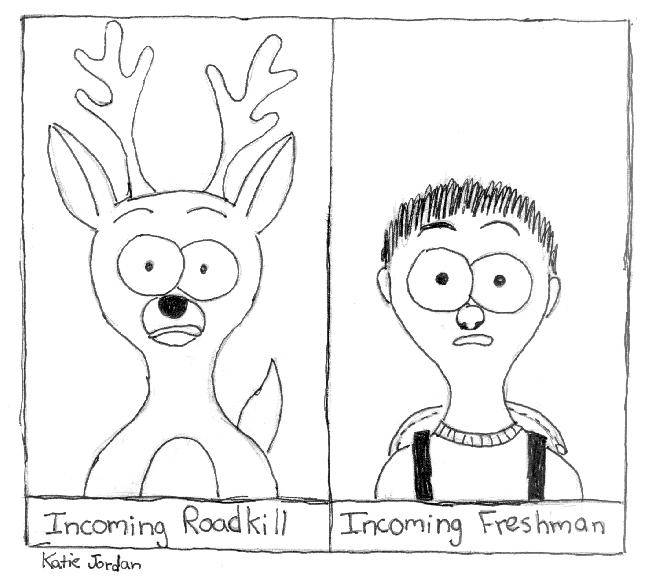 Incoming Roadkill
Incoming Freshman
Katie Jordan